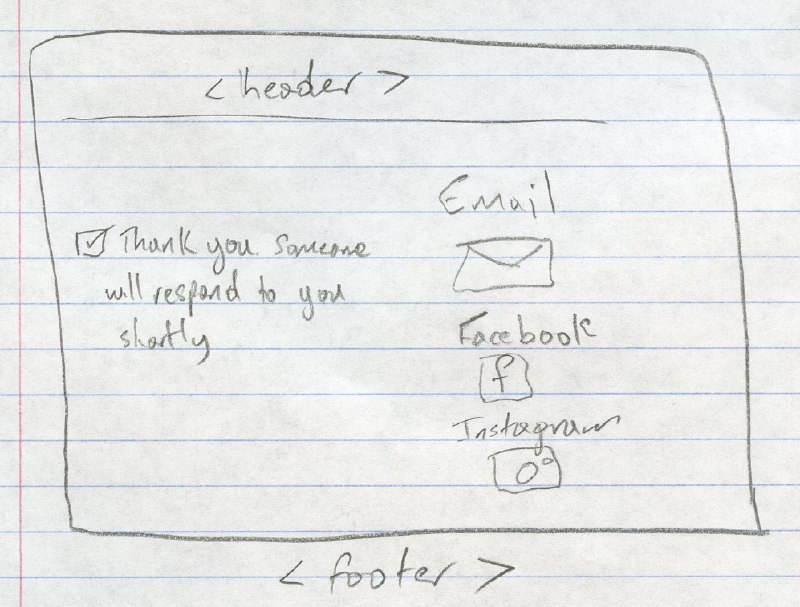 <header>
Thank you. Someone
will respond to you
shortly
Email
Facebook
f
Instagram
<footer>